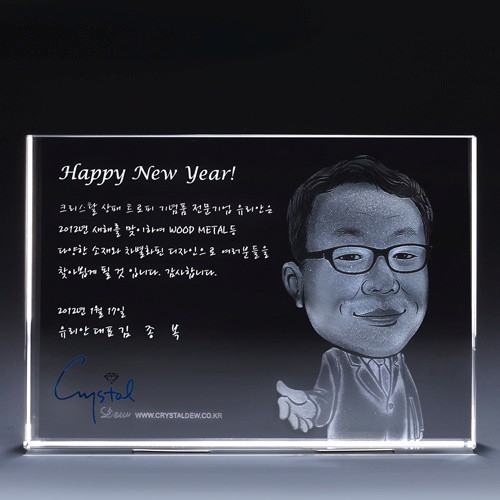 Happy New Year!
크리스탈 상패 트로피 기념품 전문기업 유리안은
2012년 새해를 맞이하여 WOOD METAL등
다양한 소재와 차별화된 디자인으로 여러분들을
찾아뵙게 될 것 입니다. 감사합니다.
2012년 1월 17일
유리안 대표 김 종 복
Crystal
Dew WWW.CRYSTALDEW.CO.KR